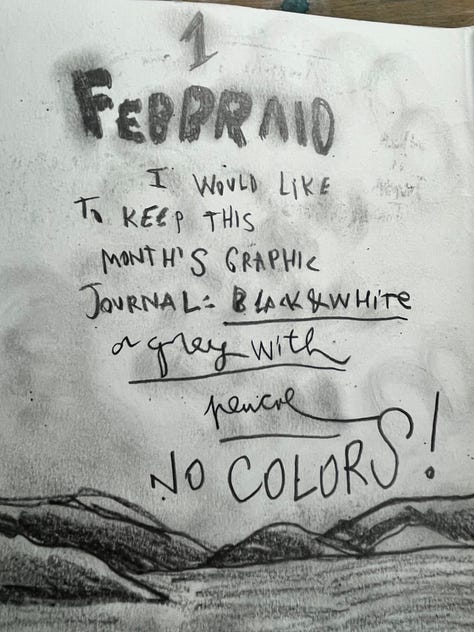 1
FEBBRAIO
I WOULD LIKE
To KEEP THIS
MONTH'S GRAPHIC
JOURNAL: BLACK&WHITE
or grey with
pencil
NO COLORS!